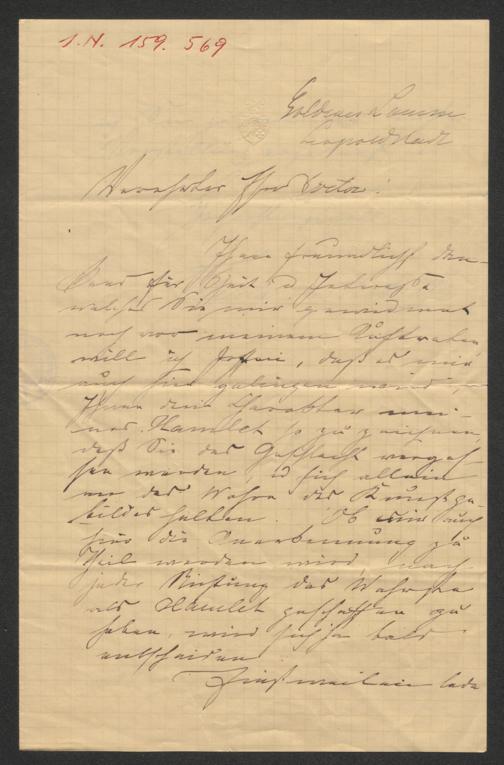 I.N. 159.569
Goldenes Lamm
Leopoldstadt
Verehrter Herr Doctor!
Ihnen freundlichst dan-
kend für Zeit u Interesse
welches Sie mir gewidmet
noch vor meinem Auftreten
will ich hoffen, daß es mir
auch hier gelingen wird,
Ihnen den Charakter mei-
nes Hamlet so zu zeichnen,
daß Sie das Geschlecht verges-
sen werden, u sich allein
an das Wahre des Kunstge-
bildes halten. Ob mir auch
hier die Anerkennung zu
Theil werden wird, nach
jeder Richtung das Wahrste
als Hamlet geschaffen zu
haben, wird sich ja bald
entscheiden.